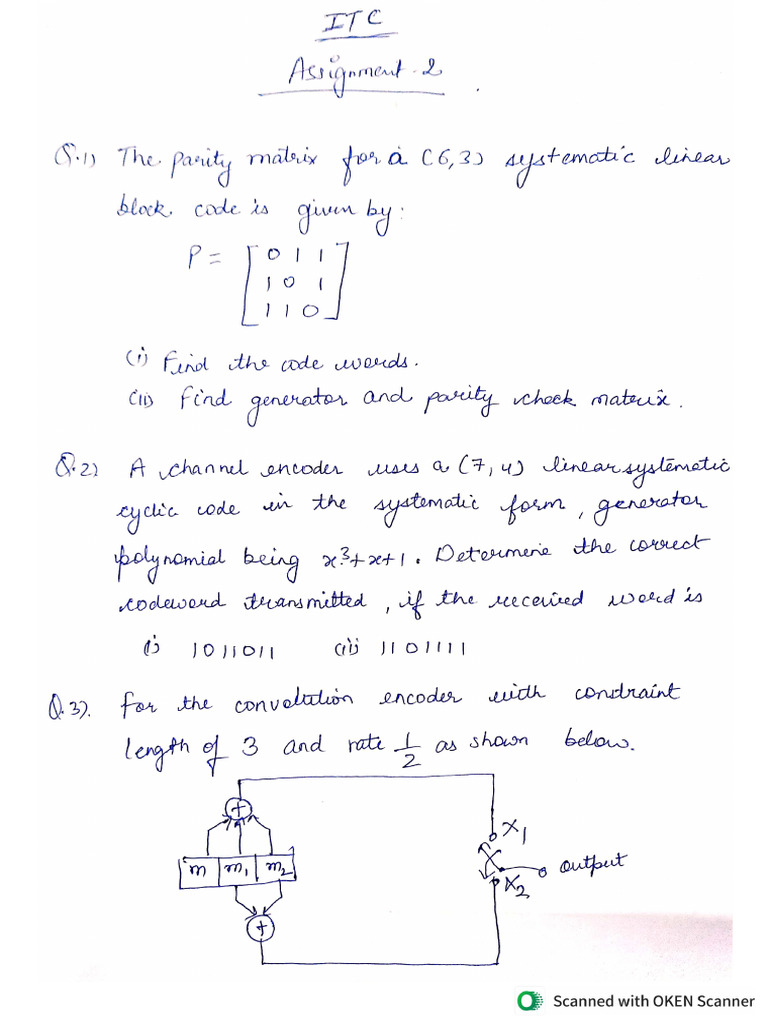 ITC
Assignment-2
Q.1) The parity matrix for a (6,3) systematic linear
block code is given by:
P = [0 1 1
1 0 1
1 1 0]
(i) Find the code words.
(ii) Find generator and parity check matrix.
Q.2) A channel encoder uses a (7,4) linear systematic
cyclic code in the systematic form, generator
polynomial being x³+x+1. Determine the correct
codeword transmitted, if the received word is
(i) 1011011 (ii) 1101111
Q.3). For the convolution encoder with constraint
length of 3 and rate 1/2 as shown below.
+
X₁
m m₁ m₂
output
X₂
+
Scanned with OKEN Scanner